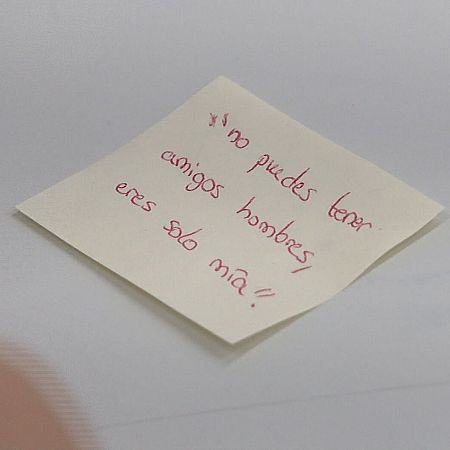 "no puedes tener
amigos hombres,
eres solo mía"